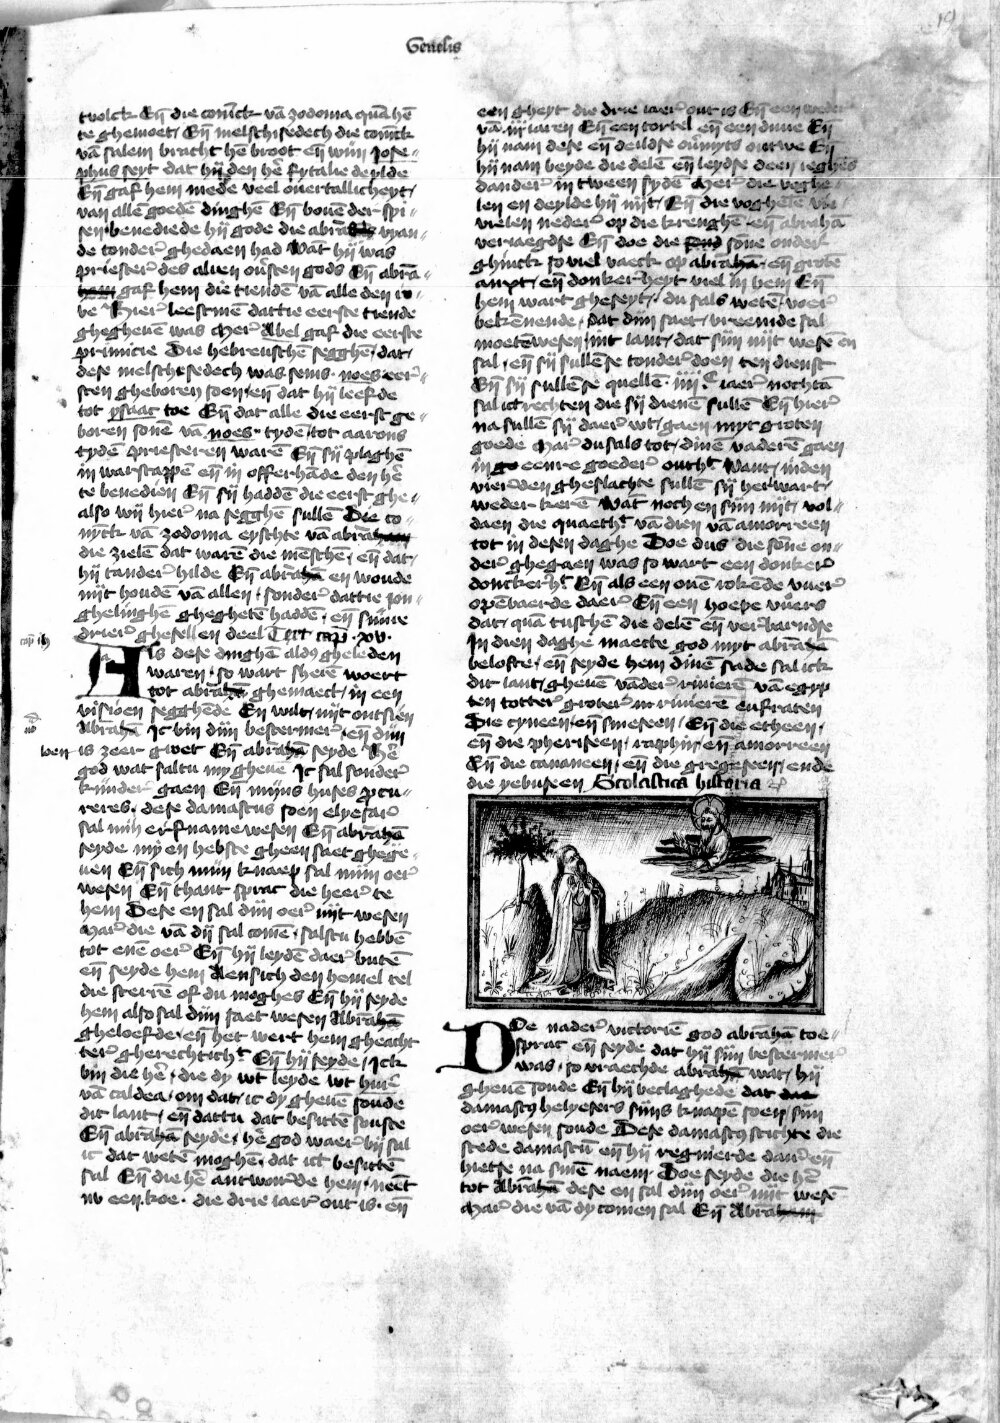 Genesis
19
tvolck Eñ die coninck vā zodoma quā hē
te ghemoet / Eñ melchisedech die coninck
vā salem bracht hē broot eñ wijn Jose
phus seyt dat hij den hē sytalie deylde
Eñ gaf hem mede veel overtallicheyt /
van allē goedē dinghē Eñ bovē der spi
sen benediede hij gode die abra vyan
de tonder ghedaen had Wāt hij was
priester des alren oūsten gods Eñ abrā
gaf hem die tiendē vā alle den ro
ve Hier leestmē dattie eerste tiende
ghegheuē was Mer Abel gaf die eerste
primicie Die hebreuschē segghē / dat /
dese melchisedech was sems . noes eer
sten gheboren soen / eñ dat hij leefde
tot ysaac toe Eñ dat alle die eerst ge
boren sonē vā noes tydē / tot aarons
tydē priesteren warē Eñ sij plaghē
in warscappē eñ in offerhāde den hē
te benedien Eñ sij haddē die eerst ghe
also wij hier na segghē sullē Die co
nyck vā zodoma eyschte vā abraham
die zielē dat warē die menschē / eñ dat /
hij tander hilde Eñ abrahā en woude
nijt houdē vā allen / sonder dattie ion
ghelinghē gheghetē haddē / eñ sijnre
drier ghesellen deel Tert cap . xv .
Als dese dinghē aldus gheleden
waren / so wart sherē woert
tot abrahā ghemaect / in een
visioen segghēde En wilt / nijt ontsien
Abrahā Ic bin dijn bescermer / eñ dijn
loen is zeer groet Eñ abrahā seyde Hē
god wat saltu my ghevē Ic sal sonder
kijnder gaen Eñ mijns huses procu
reres . dese damascus soen elyesar
sal mijn erfname wesen Eñ abrahā
seyde my en hebste gheen saet ghege
uen Eñ sich mijn knaep sal mijn oer
wesen Eñ thant sprac die heer te
hem Dese en sal dijn oer nijt wesen
Mar die vā dij sal comē / salstu hebbē
tot enē oer Eñ hij leydē daer butē
eñ seyde hem Aensich den hemel tel
die sterrē of du moghes Eñ hij seyde
hem also sal dijn saet wesen Abrahā
gheloefde / eñ het wert hem gheacht
ter gherechtich Eñ hij seyde / Ick
bin die hē / die dy wt leyde wt hur
vā caldea / om dat / ic dy ghevē soude
dit lant / eñ dattu dat besittē souste
Eñ abrahā seyde / hē god waer bij sal
ic dat wetē moghē / dat ick besittē
sal Eñ die hē antwoirde hem / neēt
nv een koe . die drie iaer out is . eñ
een gheyt die drie iaer out is Eñ een weder
vā iij iaren Eñ een tortel eñ een duve Eñ
hij nam dese eñ deildse ontwe Eñ
hij nam beyde die delē eñ leydse deen ieghēs
dander in tween sydē Mer die voghe
len en deylde hij nijt / Eñ die voghelē
vielen neder op die krenghē eñ abrahā
veriaegdse Eñ doe die sone onder
ghinck so viel vaeck op abrahā / eñ grotē
anxt / eñ donkerheyt viel in hem Eñ
hem wart gheseyt / du sals wetē / voer
bekēnende / dat dijn saet / vreemde sal
moetē wesen / int lant / dat sijn nijt wesē en
sal / eñ sij sullēse tonder doen ten dienst
Eñ sij sullēse quellē . iiij iaer nochtā
sal ick rechten die sij dienē sullē Eñ hier
na sullē sij daer wt / gaen myt groten
goede Mar du sals tot / dinē vaderē gaen
in eenre goeder outh Want / inden
vierden gheslachte sullē sij herwart /
weder kerē Wāt noch en sijn nijt / vol
daen die quaeth vā dien vā amorreen
tot in desen daghe Doe dus die sōne on
der ghegaen was so wart een donker
donckerh Eñ als een ovē rokēde vuer
opēbaerde daer Eñ een hoepe vuers
dat / qua tuschē die delē eñ verbarndse
In dien daghe maecte god myt abrahā
belofte / eñ seyde hem dinē sade sal ick
dit lant / ghevē vāder rivierē vā egyp
ten totter groter rivierē eufraten
Die cyneen / eñ sineseen / Eñ die etheen /
eñ die pheriseen / raphin / eñ amorreen
Eñ die cananeen / eñ die gregeseen / ende
die yebuseen Scolastica historia
Doe nader victoriē god abrahā toe
sprac eñ seyde dat hij sijn bescermer
was / so vraechde abrahā wat / hij
ghevē soude Eñ hij beclaghede dat
damascus helyesers sijns knapē soen / sijn
oer wesen soude Dese damascus stichte die
stede damascū eñ hij regnierde daer eñ
hietse na sinē naem Doe seyde die hē
tot Abrahā dese en sal dijn oer nijt wesē
Mar die vā dy comen sal Eñ Abraham